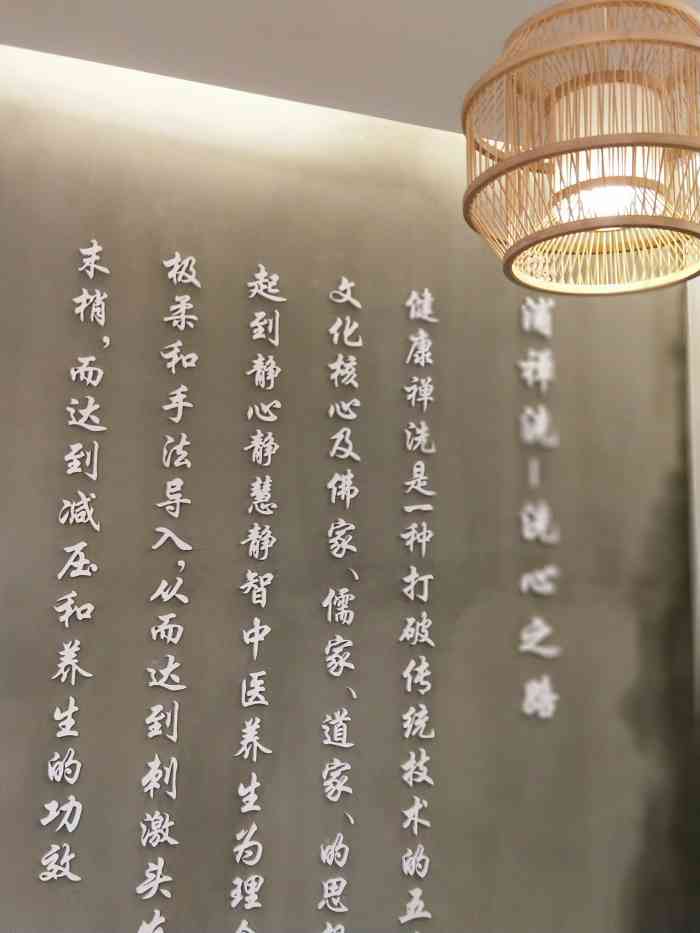 禅洗—洗心之路
健康禅洗是一种打破传统技术的五
文化核心及佛家、儒家、道家、的思
起到静心静慧静智中医养生为理
极柔和手法导入,从而达到刺激头
末梢,而达到减压和养生的功效